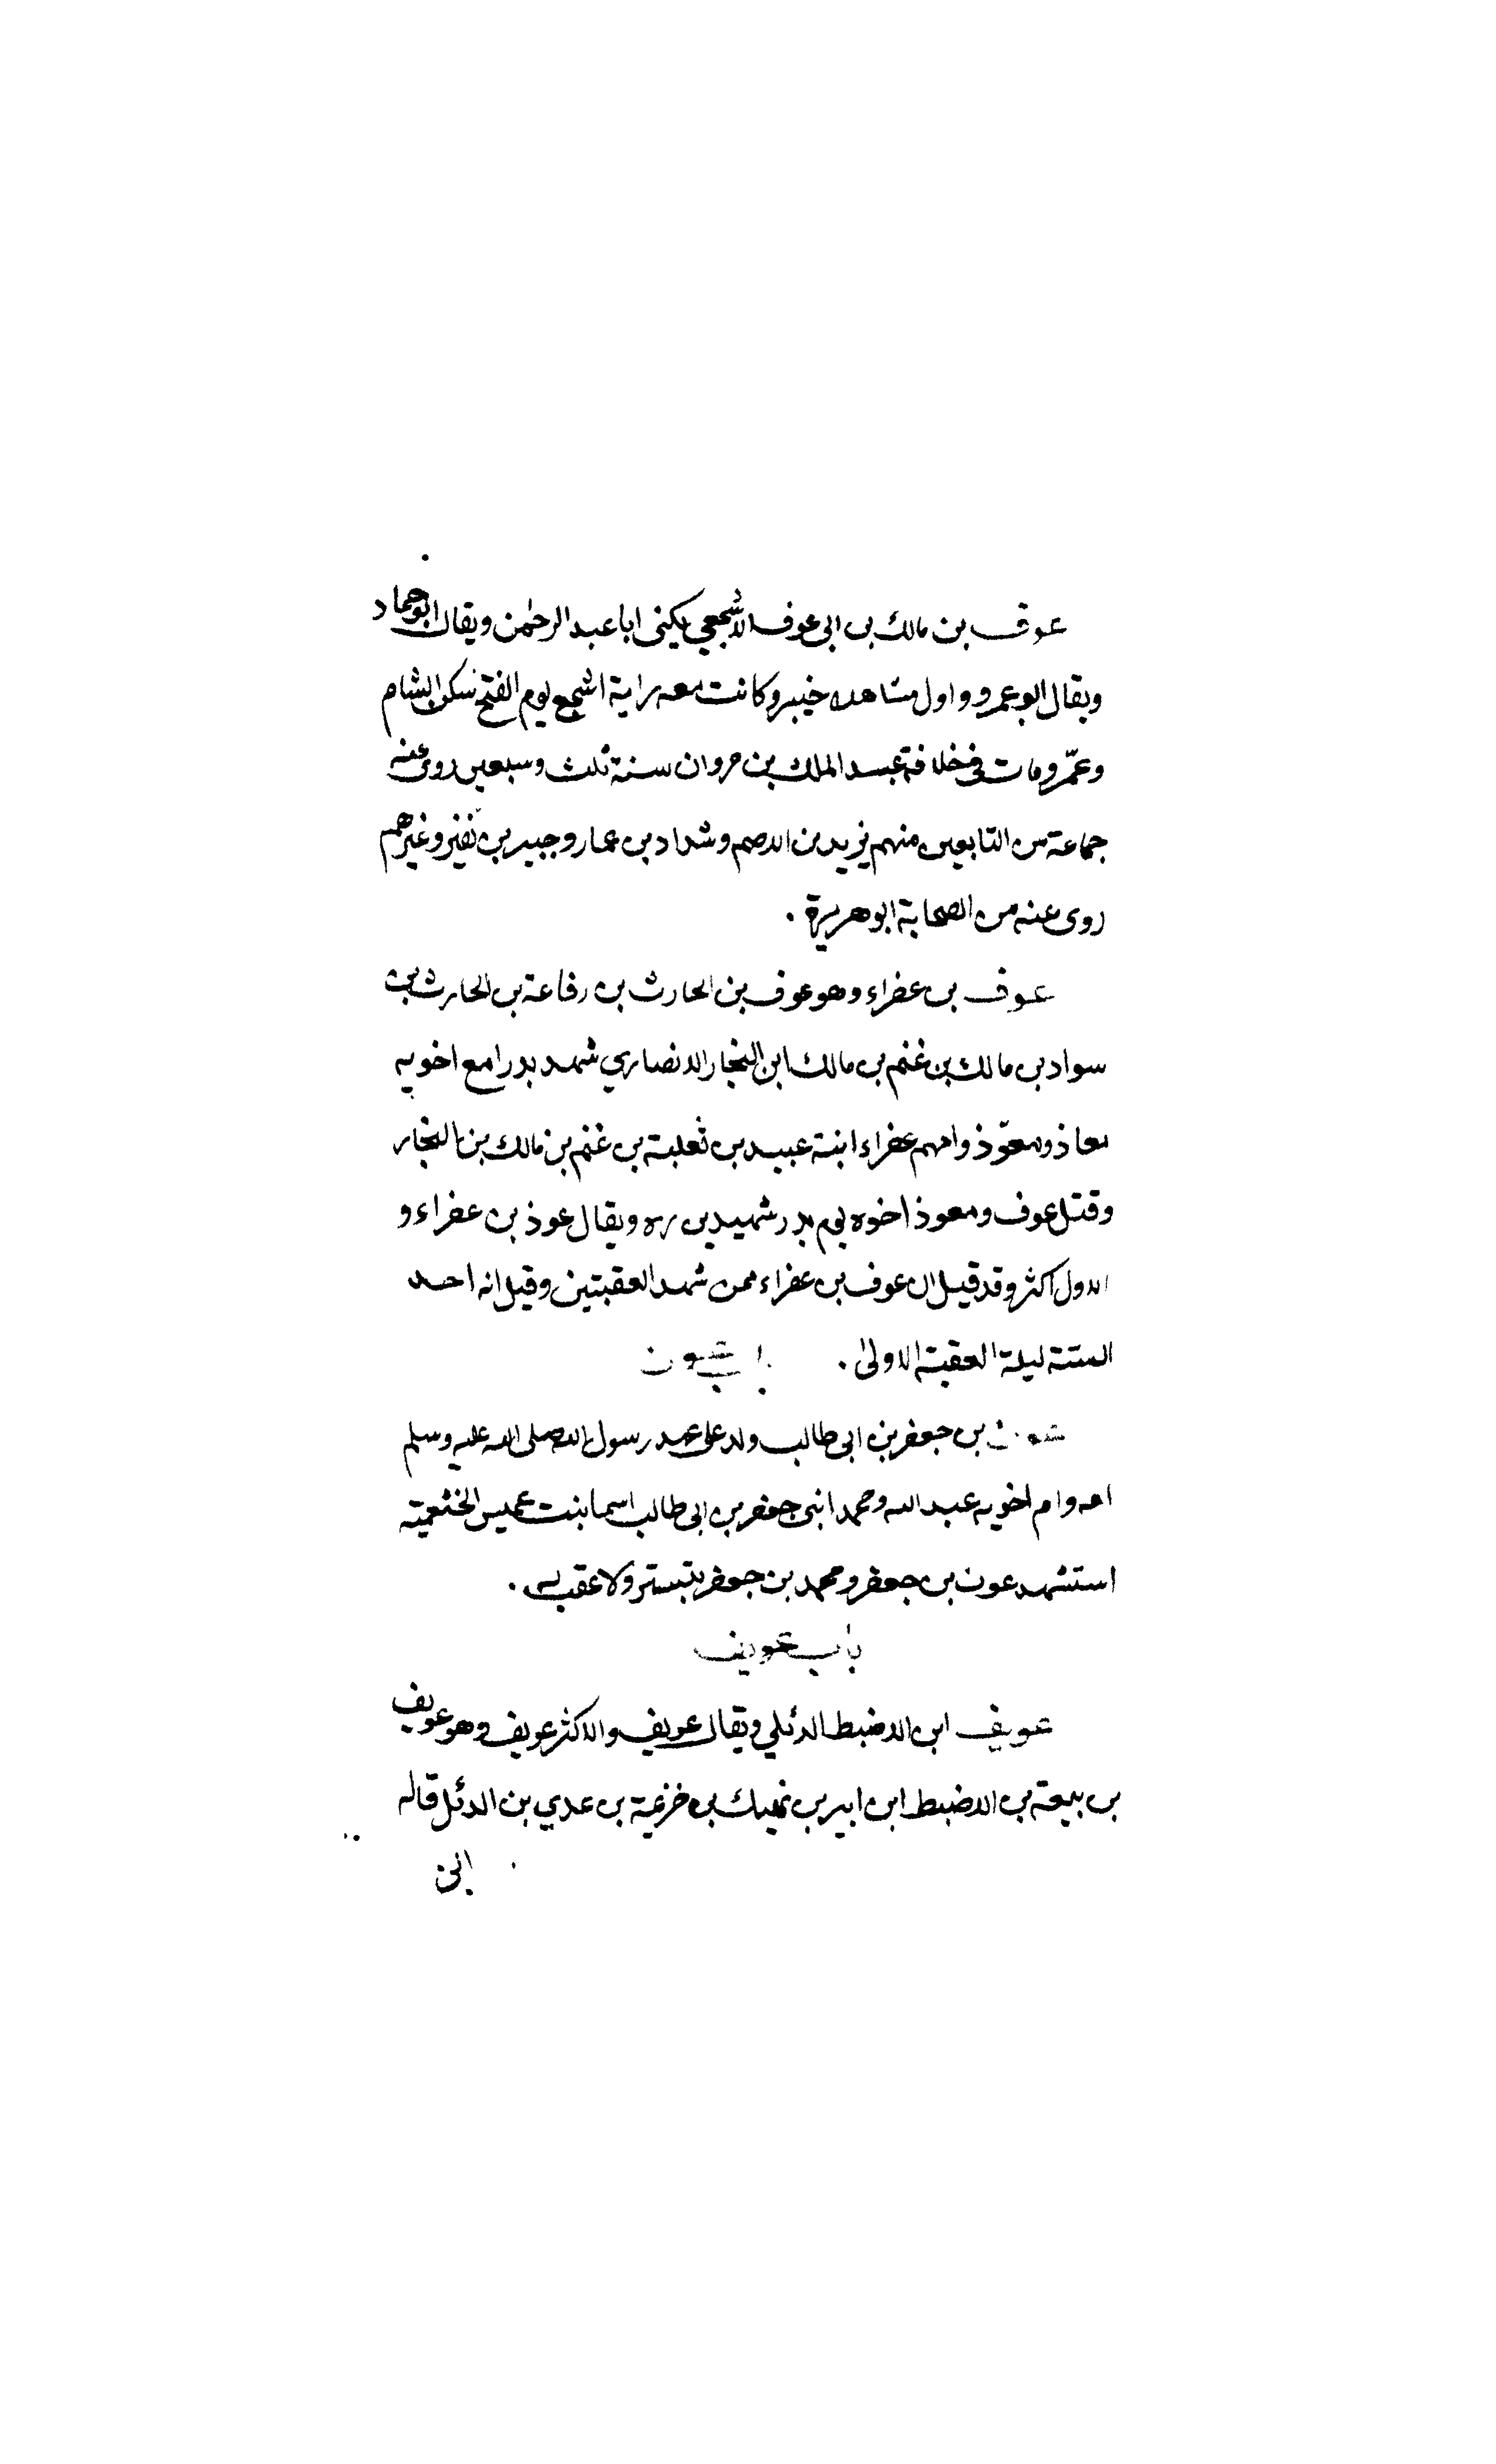 عوف بن مالك بن ابى عوف الاشجعي يكنى ابا عبد الرحمٰن ويقال ابو حماد
ويقال ابو عمرو واول مشاهده خيبر وكانت معه راية اشجع يوم الفتح سكن الشام
وعمّر ومات فى خلافة عبد الملك بن مروان سنة ثلث وسبعين روى عنه
جماعة من التابعين منهم يزيد بن الاصم وشداد بن عمار وجبير بن نفير وغيرهم
روى عنه من الصحابة ابو هريرة .
عوف بن عفراء وهو عوف بن الحارث بن رفاعة بن الحارث بن
سواد بن مالك بن غنم بن مالك ابن النجار الانصاري شهد بدرا مع اخويه
معاذ ومعوّذ وامهم عفراء ابنة عبيد بن ثعلبة بن غنم بن مالك بن النجار
وقتل عوف ومعوذ اخوه يوم بدر شهيدين ره ويقال عوذ بن عفراء و
الاول اكثر وقد قيل ان عوف بن عفراء ممن شهد العقبتين وقيل انه احد
الستة ليلة العقبة الاولىٰ . باب عون
عون بن جعفر بن ابى طالب ولد على عهد رسول الله صلى الله عليه وسلم
امه وام اخويه عبد الله ومحمد ابنى جعفر بن ابى طالب اسما بنت عميس الخثعمية
استشهد عون بن جعفر ومحمد بن جعفر بتستر ولا عقب له .
باب عويف
عويف ابن الاضبط الدئلي ويقال عويف والاكثر عويف وهو عويف
بن ربيعة بن الاضبط ابن ابير بن نهيك بن خزيمة بن عدي بن الدئل قاله
ابن